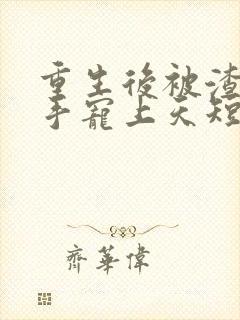 重生後被渣
手寵上天短
齊華偉